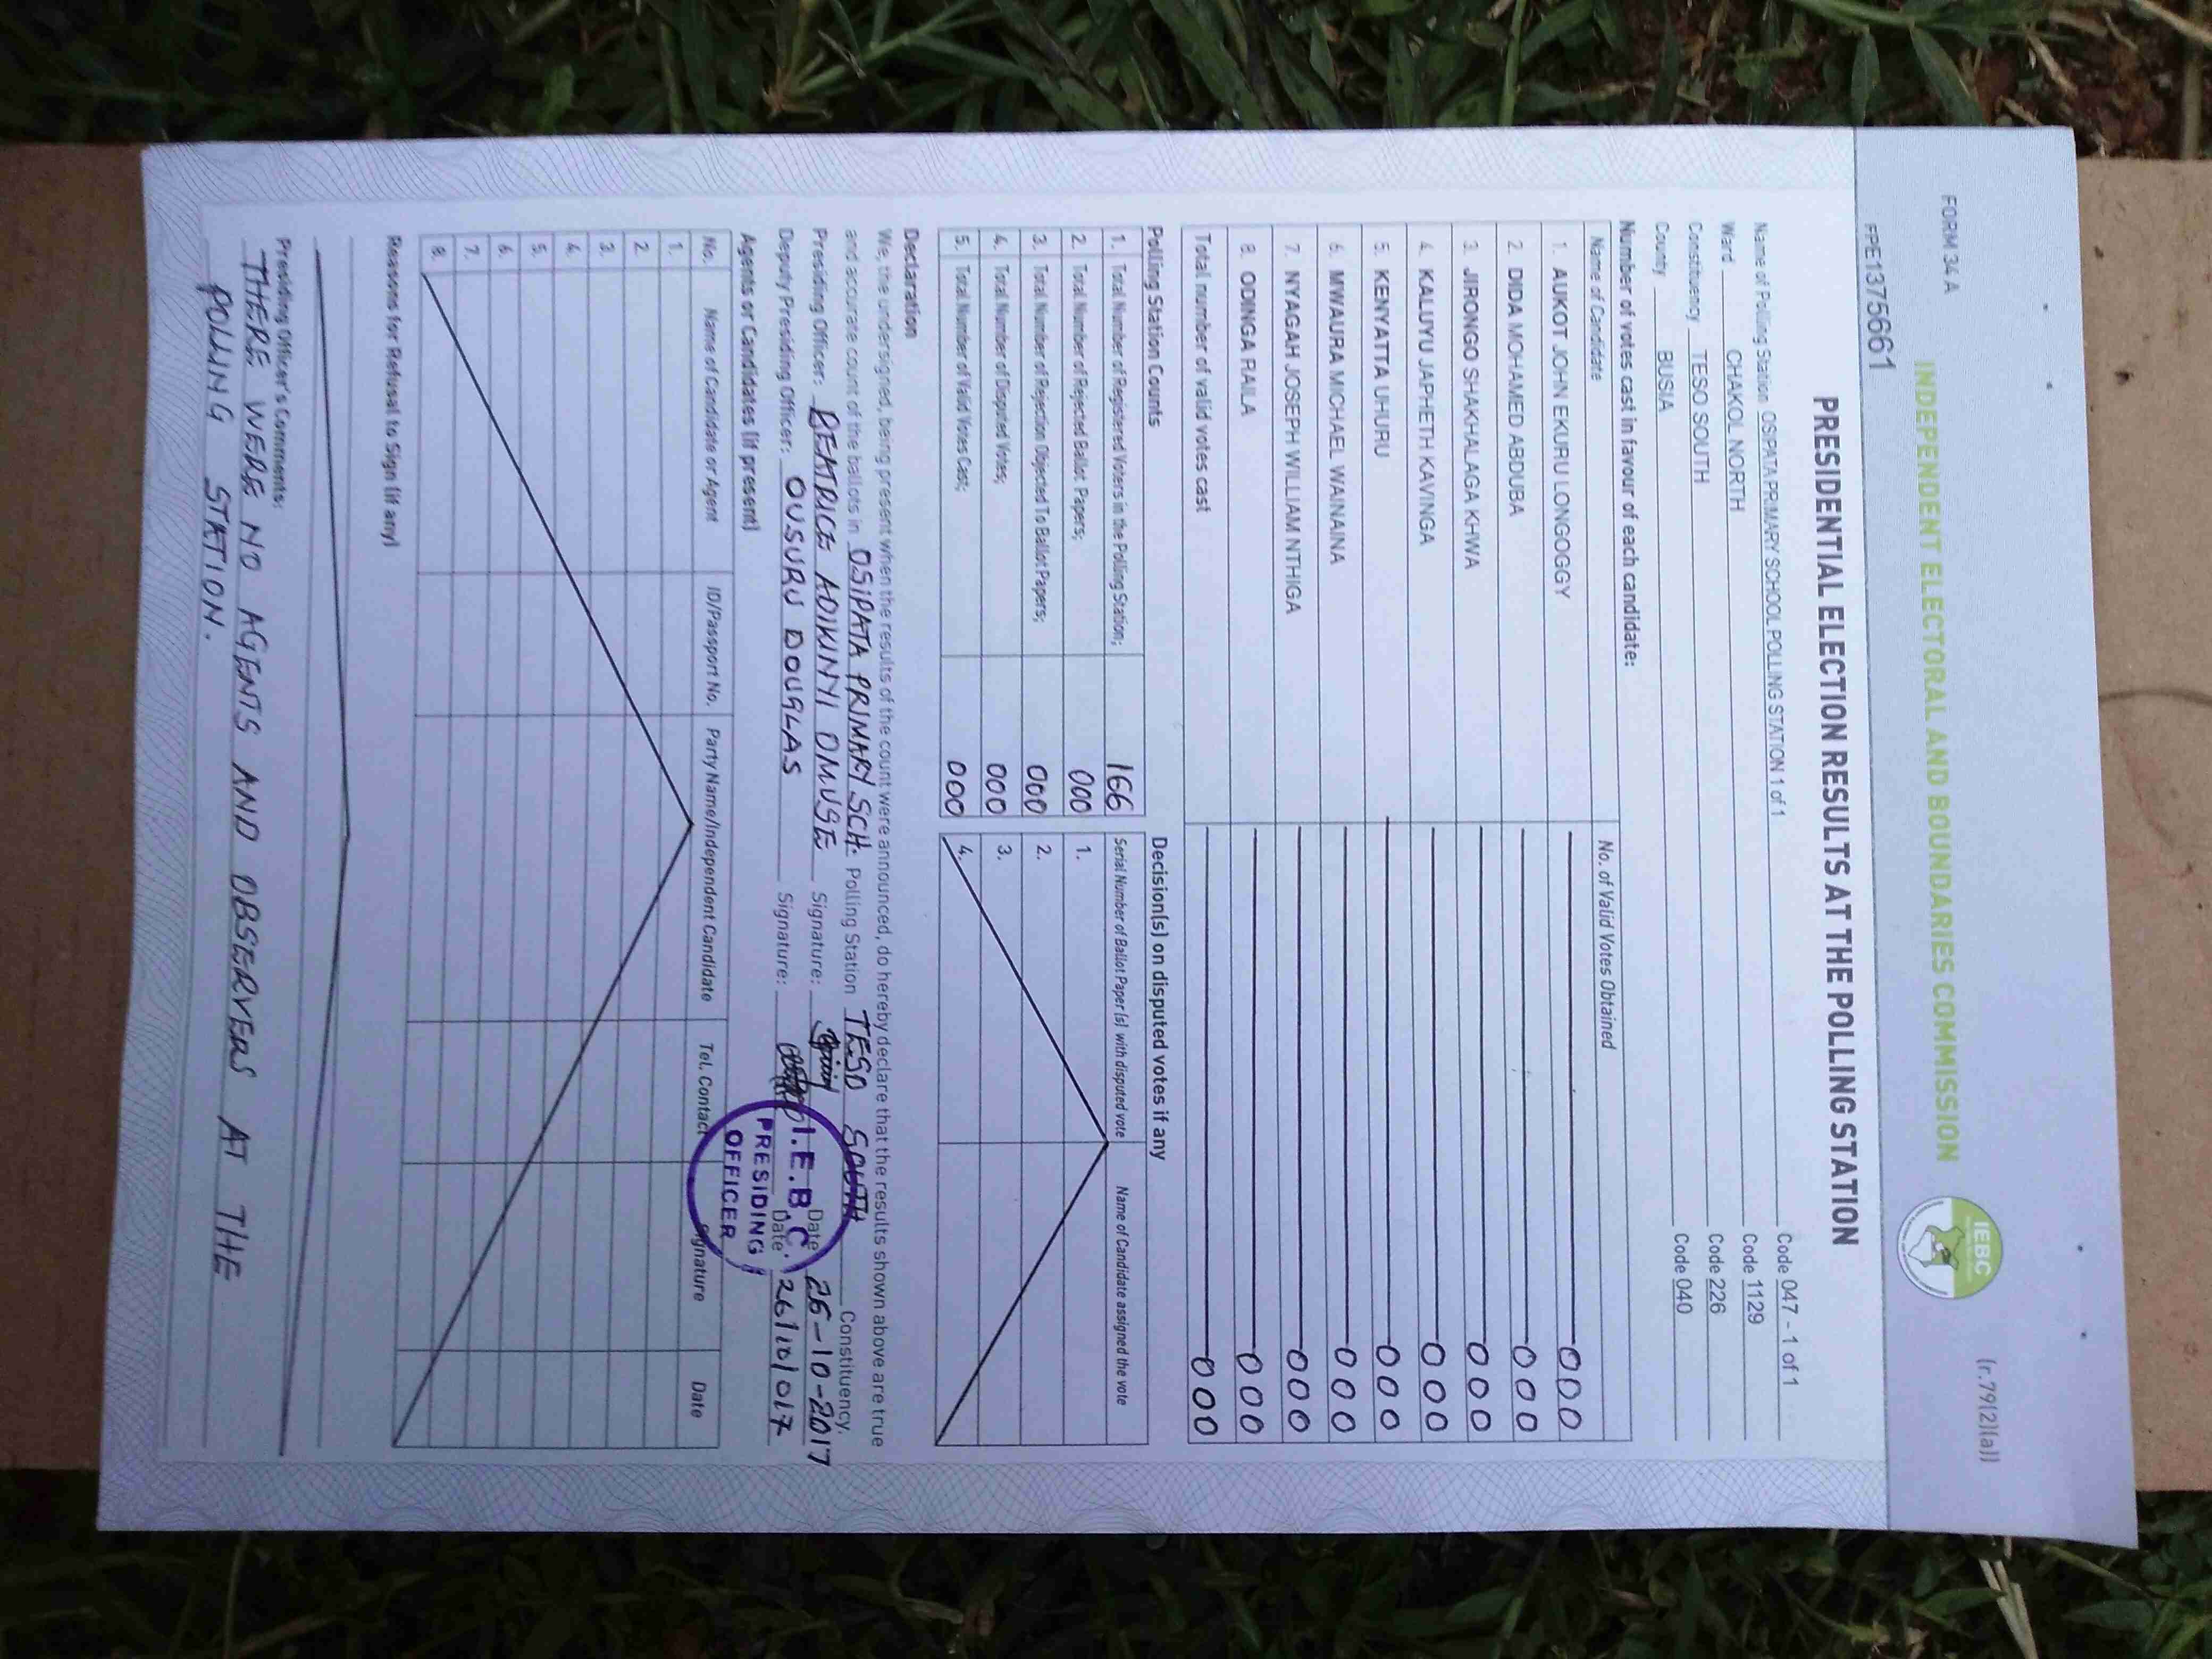 FORM 34 A
(r.79(2)(a))
INDEPENDENT ELECTORAL AND BOUNDARIES COMMISSION
IEBC
FPE1375661
PRESIDENTIAL ELECTION RESULTS AT THE POLLING STATION
Name of Polling Station OSIPATA PRIMARY SCHOOL POLLING STATION 1 of 1 Code 047 - 1 of 1
Ward CHAKOL NORTH Code 1129
Constituency TESO SOUTH Code 226
County BUSIA Code 040
Number of votes cast in favour of each candidate:
Name of Candidate No. of Valid Votes Obtained
1. AUKOT JOHN EKURU LONGOGGY 000
2. DIDA MOHAMED ABDUBA 000
3. JIRONGO SHAKHALAGA KHWA 000
4. KALUYU JAPHETH KAVINGA 000
5. KENYATTA UHURU 000
6. MWAURA MICHAEL WAINAINA 000
7. NYAGAH JOSEPH WILLIAM NTHIGA 000
8. ODINGA RAILA 000
Total number of valid votes cast 000
Polling Station Counts Decision(s) on disputed votes if any
1. Total Number of Registered Voters in the Polling Station; 166 Serial Number of Ballot Paper(s) with disputed vote Name of Candidate assigned the vote
2. Total Number of Rejected Ballot Papers; 000 1.
3. Total Number of Rejection Objected To Ballot Papers; 000 2.
4. Total Number of Disputed Votes; 000 3.
5. Total Number of Valid Votes Cast; 000 4.
Declaration
We, the undersigned, being present when the results of the count were announced, do hereby declare that the results shown above are true
and accurate count of the ballots in OSIPATA PRIMARY SCH. Polling Station TESO SOUTH Constituency.
Presiding Officer: BEATRICE ADIKINYI OMUSE Signature: Date 26-10-2017
Deputy Presiding Officer: OUSURU DOUGLAS Signature: Date 26/10/017
I.E.B.C.
PRESIDING
OFFICER
Agents or Candidates (if present)
No. Name of Candidate or Agent ID/Passport No. Party Name/Independent Candidate Tel. Contact Signature Date
1.
2.
3.
4.
5.
6.
7.
8.
Reasons for Refusal to Sign (if any)
Presiding Officer's Comments:
THERE WERE NO AGENTS AND OBSERVERS AT THE
POLLING STATION.